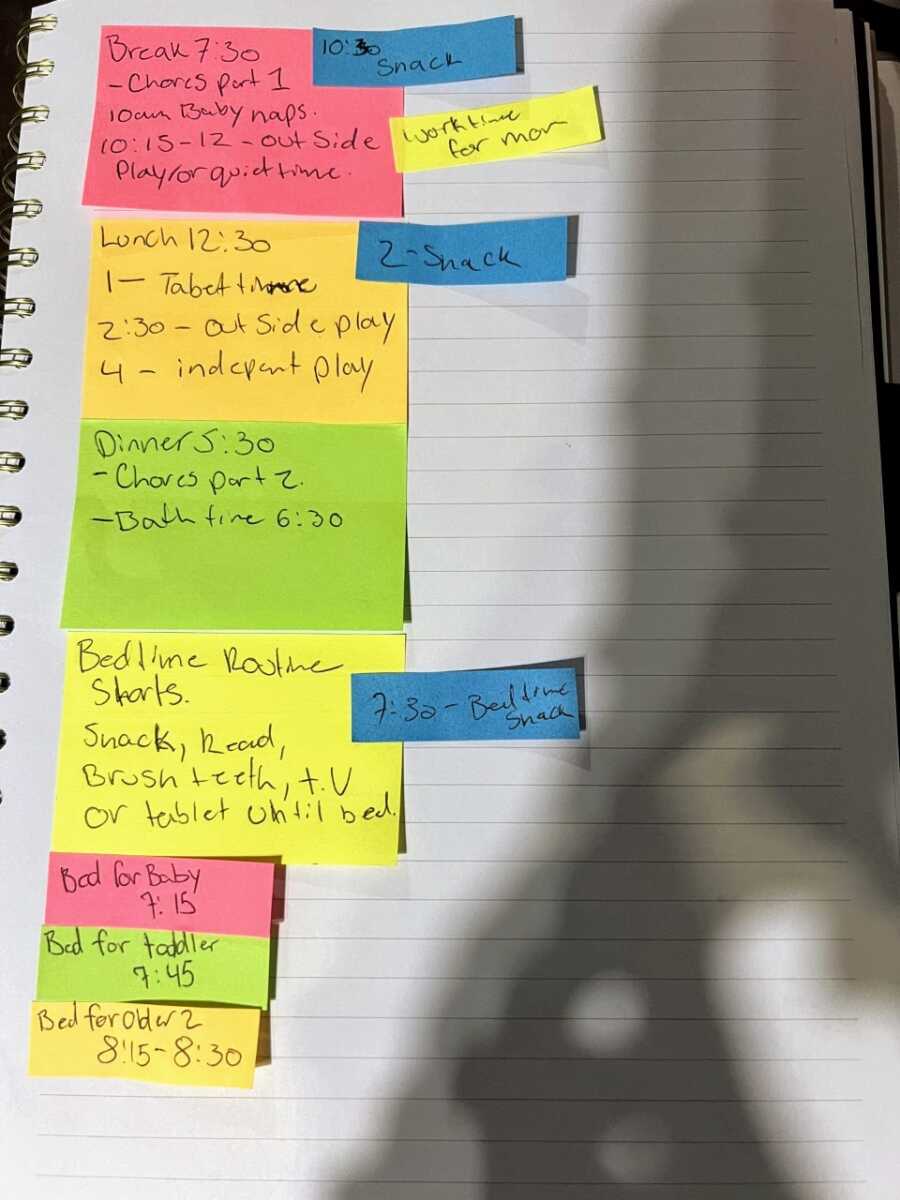 Break 7:30
- Chores part 1
10am Baby naps.
10:15-12 - out Side
Play/or quiet time.
10:30
Snack
work time
for mom
Lunch 12:30
1 - Tabet time
2:30 - out Side play
4 - indepent play
2-Snack
Dinner 5:30
- Chores part 2.
- Bath time 6:30
Bedtime Routine
Starts.
Snack, Read,
Brush teeth, t.V
or tablet until bed.
7:30 - Bedtime
Snack
Bed for Baby
7:15
Bed for toddler
7:45
Bed for Older 2
8:15-8:30